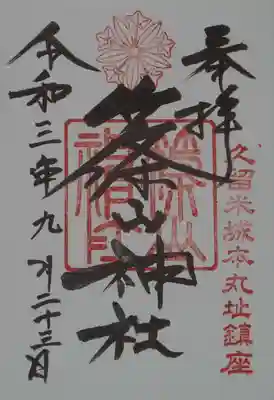 久留米城本丸址鎮座
奉拝
篠山神社
令和三年九月二十三日